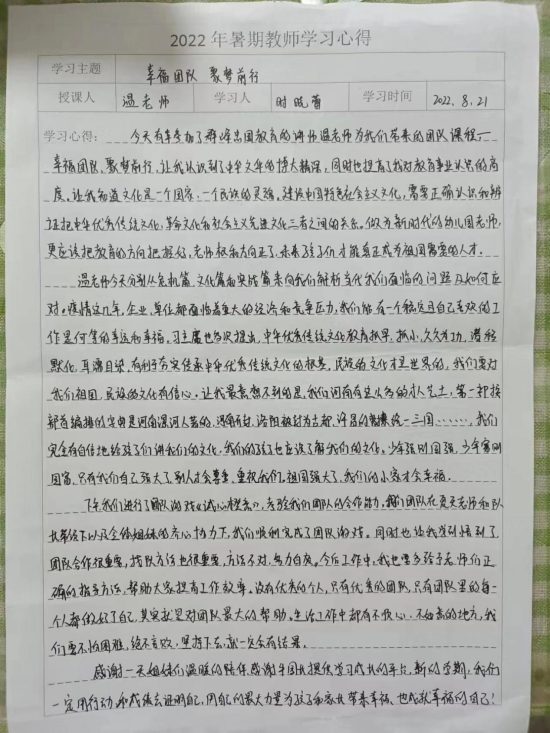 2022年暑期教师学习心得
学习主题 幸福团队 聚梦前行
授课人 温老师 学习人 时晓蕾 学习时间 2022.8.21
学习心得: 今天有幸参加了 教育的讲师温老师为我们带来的团队课程—
幸福团队,聚梦前行,让我认识到了中华文华的博大精深,同时也提高了我对教育事业认识的高
度。让我知道文化是一个国家、一个民族的灵魂。建设中国特色社会主义文化,需要正确认识和辨
证把中华优秀传统文化,革命文化和社会主义先进文化三者之间的关系。做为新时代的幼儿园老师,
更应该把教育的方向把握好,老师 方向正了,未来孩子们才能真正成为祖国需要的人才。
温老师今天分别从危机篇、文化篇和实践篇来向我们解析当代我们面临的问题及如何应
对。疫情这几年,企业、单位都面临着重大的经济和竞争压力,我们能有一个稳定且自己喜欢的工
作是何等的幸运和幸福。习主席也多次提出,中华优秀传统文化教育抓早、抓小、久久为功、潜移
默化、耳濡目染,有利于夯实传承中华优秀传统文化的根基。民族的文化才是世界的,我们要对
我们祖国、民族的文化有信心。让我最意想不到的是,我们河南有这么多的才人志士,第一部按
部首编排的字典是河南漯河人著的,河南开封、洛阳被封为古都、许昌的 三国……,我们
完全有自信地给孩子们讲我们的文化,我们的孩子也应该了解我们的文化。少年强则国强,少年富则
国富,只有我们自己强大了,别人才会尊重、重视我们。祖国强大了,我们的小家才会幸福。
下午我们进行了团队游戏《诚心 》,考验我们团队的合作能力,我们团队在 老师和队
长带领下以及全体姐妹的齐心协力下,我们顺利完成了团队游戏。同时也让我感到悟到了
团队合作很重要,找队方法也很重要,方法不对,努力白废。今后工作中,我也要多给予老师们正
确的指导方法,帮助大家提高工作效率。没有优秀的个人,只有优秀的团队,只有团队里的每一
个人都做好了自己,其实就是对团队最大的帮助。生活工作中都有不快心、不如意的地方,我
们要不怕困难,绝不言败,坚持下去,就一定会有结果。
感谢一天姐妹们温暖的陪伴,感谢 提供学习成长的平台,新的学期,我们
一定用行动和成绩去证明自己,用自己的最大力量为孩子和家长带来幸福、也成就幸福的自己!